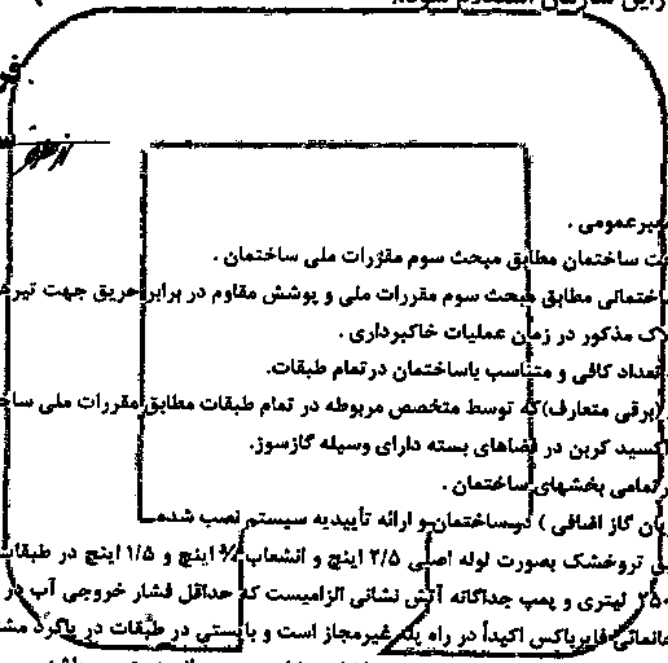 معبر عمومی .
ساختمان مطابق مبحث سوم مقررات ملی ساختمان .
مطابق مبحث سوم مقررات ملی و پوشش مقاوم در برابر حریق جهت
مذکور در زمان عملیات خاکبرداری .
تعداد کافی و متناسب باساختمان درتمام طبقات.
(برقی متعارف)که توسط متخصص مربوطه در تمام طبقات مطابق مقررات ملی
اکسید کربن در فضاهای بسته دارای وسیله گازسوز.
تمامی بخشهای ساختمان .
گاز اضافی ) درساختمان و ارائه تأییدیه سیستم نصب شده
تروخشک بصورت لوله اصلی ۲/۵ اینچ و انشعاب ¾ اینچ و ۱/۵ اینچ در طبقات
لیتری و پمپ جداگانه آتش نشانی الزامیست که حداقل فشار خروجی آب در
فایرباکس اکیداً در راه پله غیرمجاز است و بایستی در طبقات در پاگرد